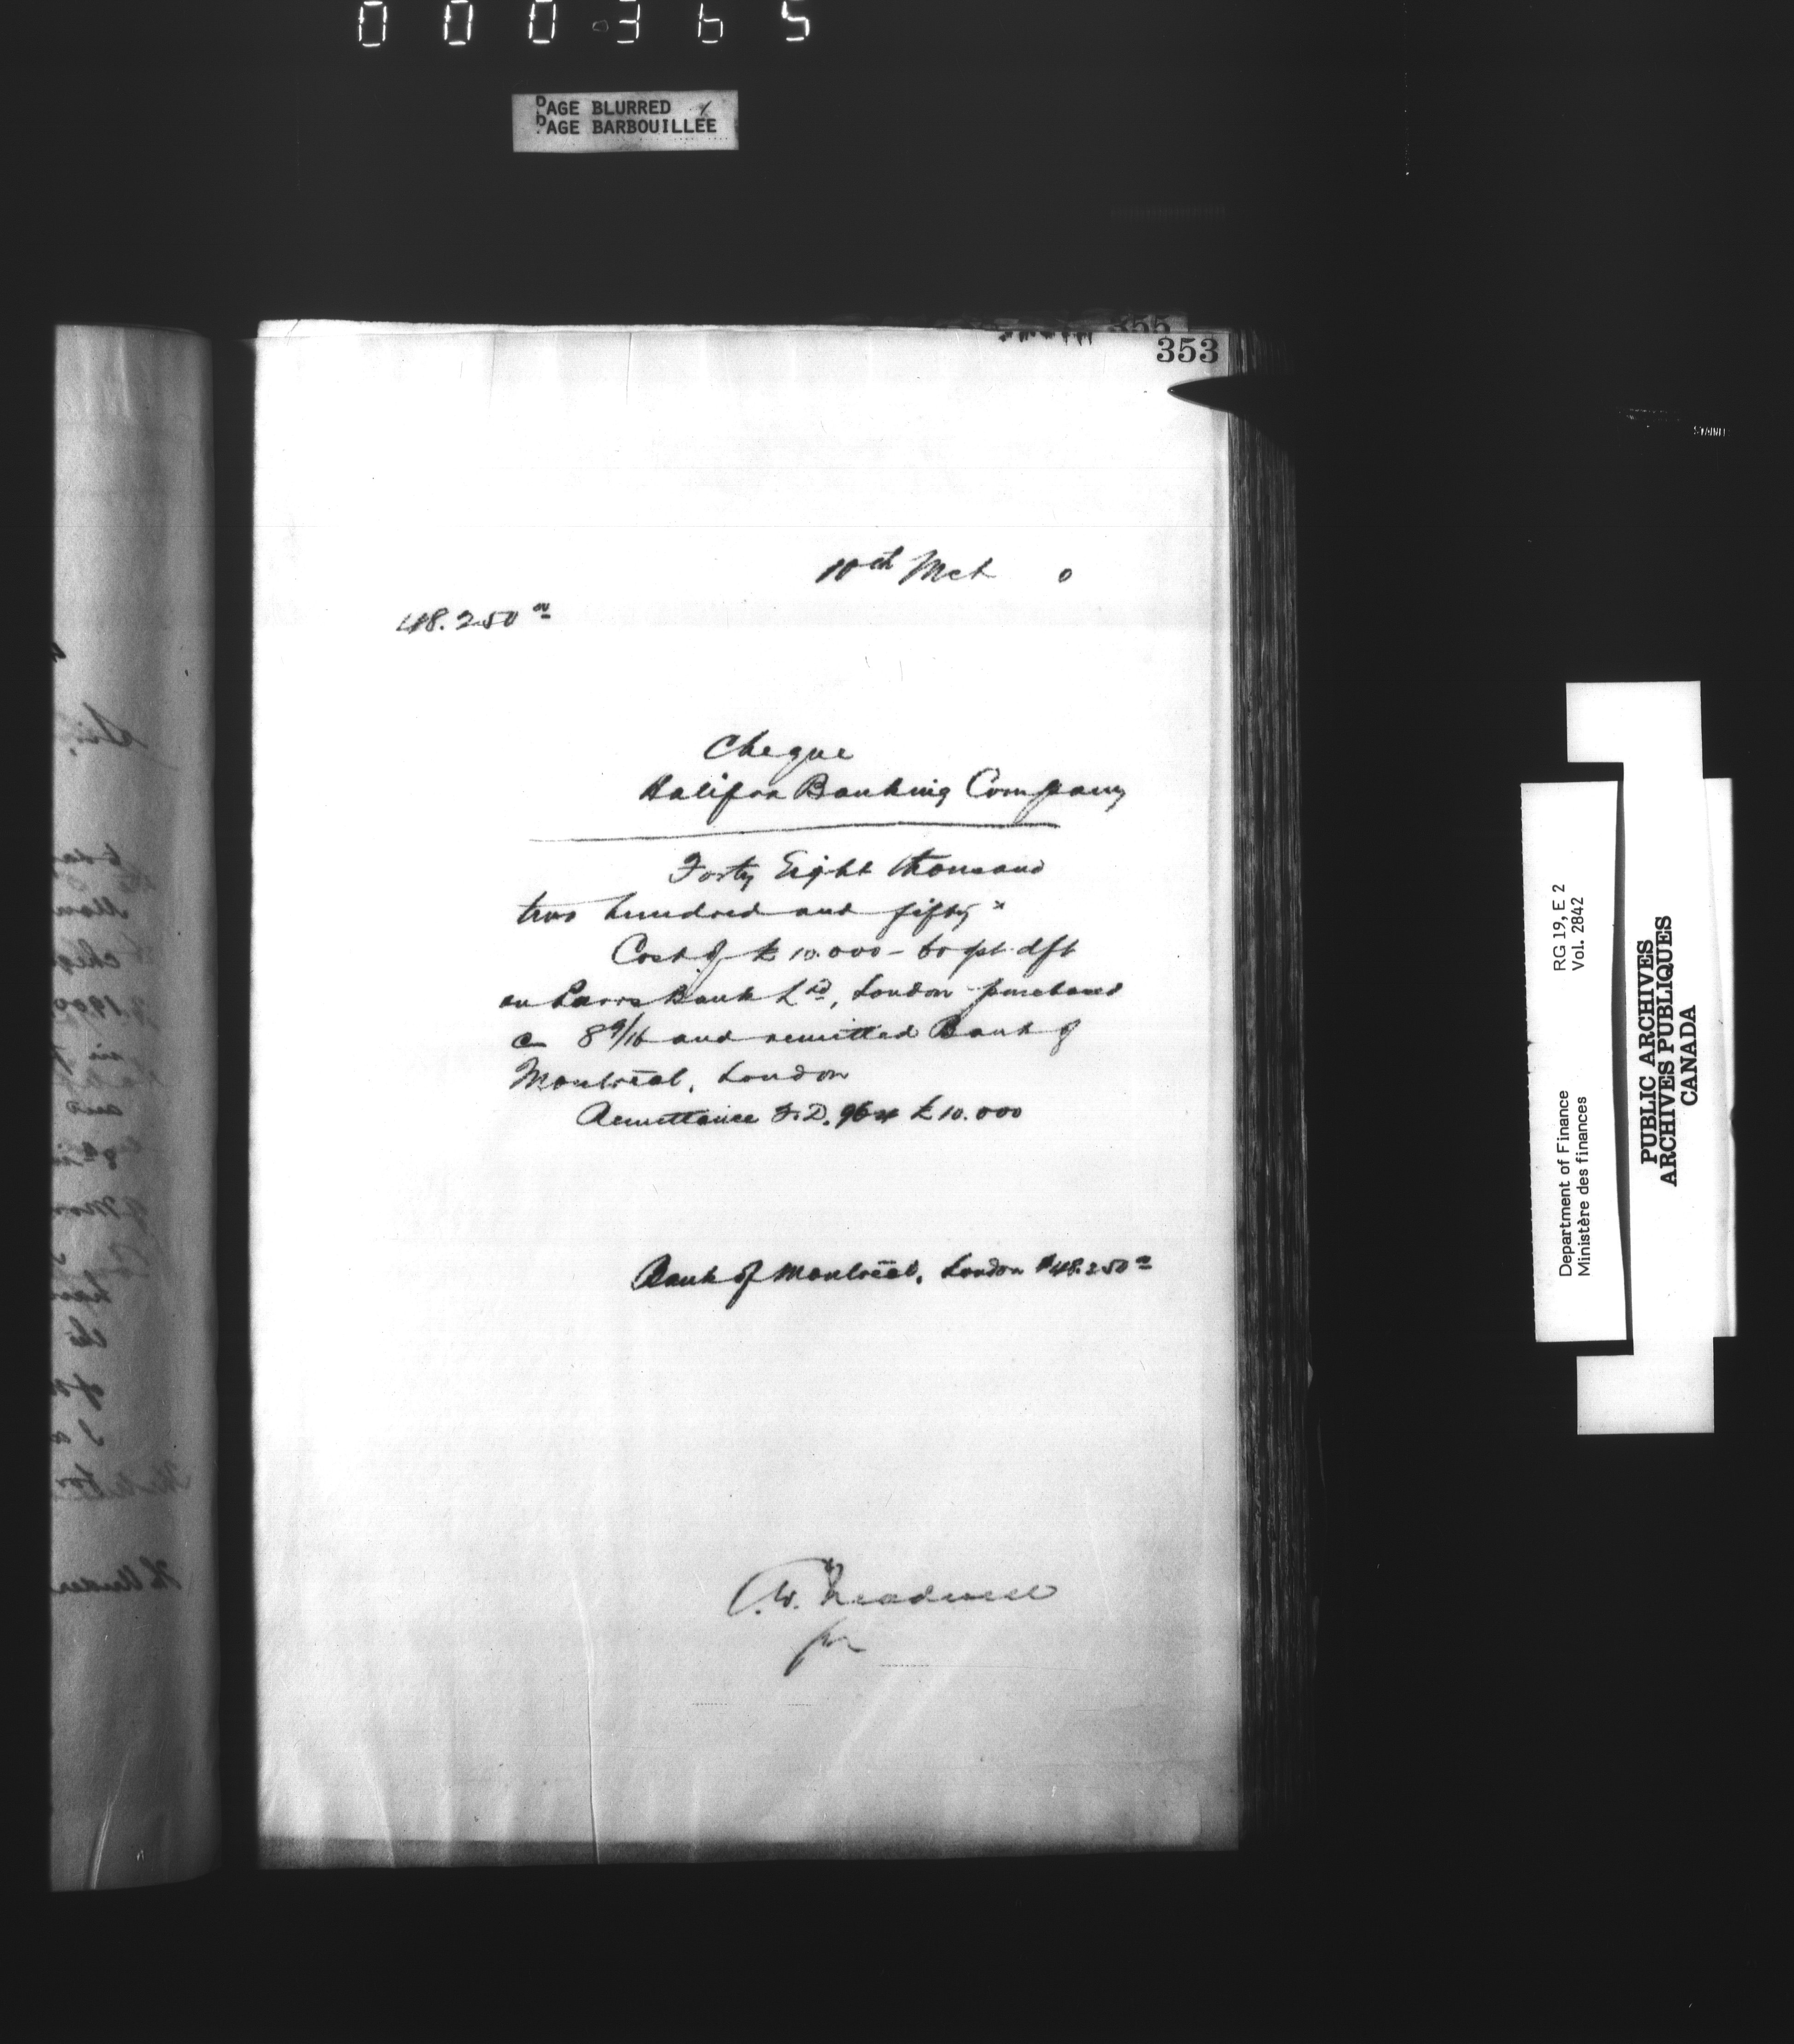 000365
PAGE BLURRED
PAGE BARBOUILLÉE
355
353
10th Mch 0
48.250 00
Cheque
Halifax Banking Company
Forty Eight thousand
two hundred and fifty x
Cost of £ 10.000 - 60 dft
on Parrs Bank Ltd, London purchased
@ 8 9/16 and remitted Bank of
Montreal, London
Remittance F.D. £ 10.000
Bank of Montreal, London $48.250 00
C.W. Treadwell
for
Department of Finance
Ministère des finances
RG 19, E 2
Vol. 2842
PUBLIC ARCHIVES
ARCHIVES PUBLIQUES
CANADA